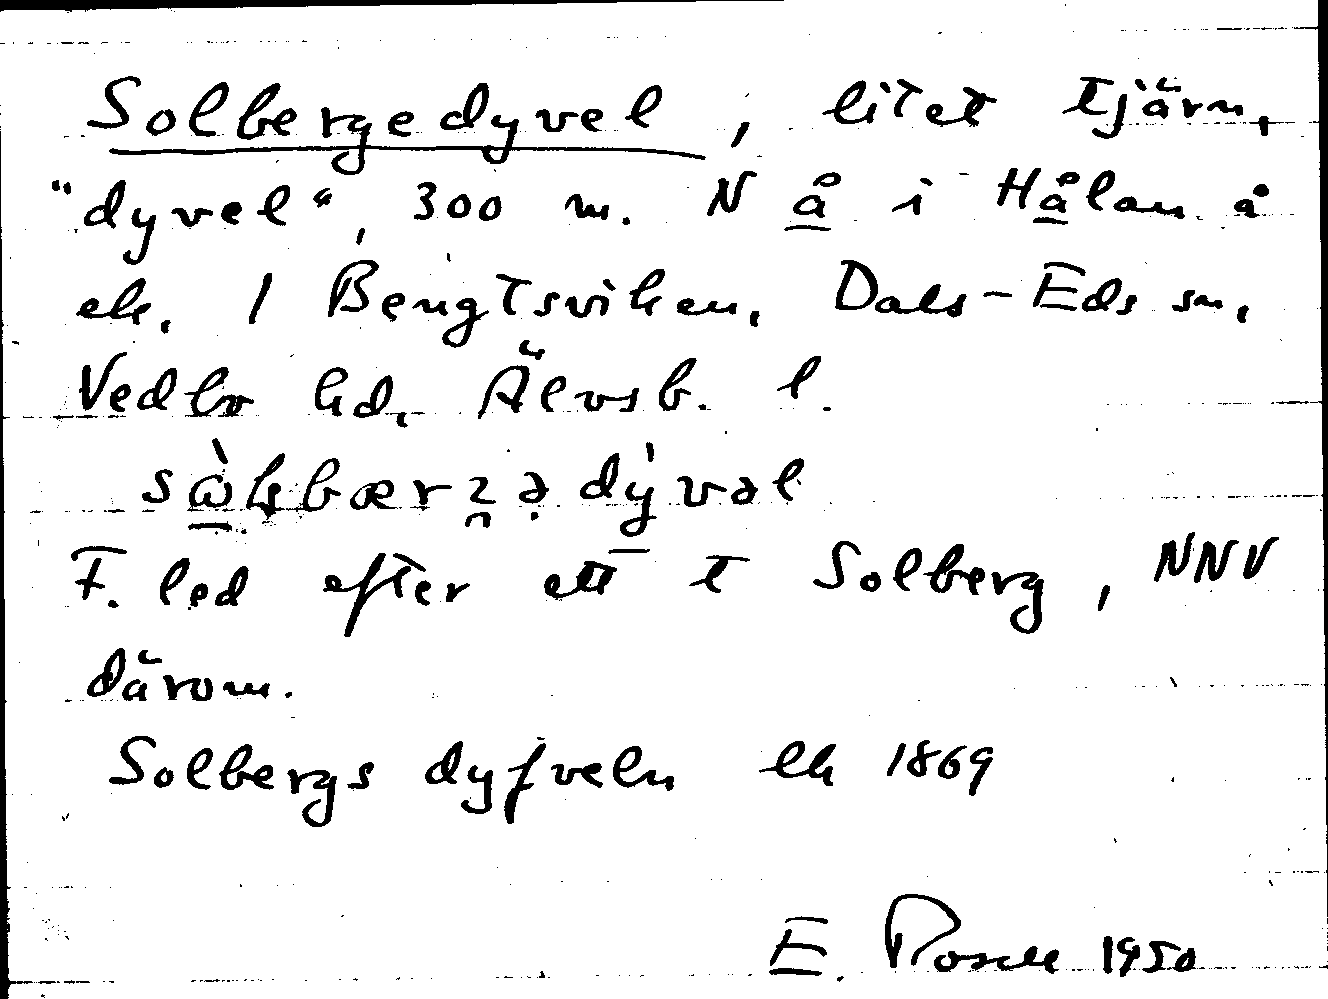 Solbergedyvel, litet tjärn,
"dyvel", 300 m. N å i Hålan å
ek. 1 Bengtsviken, Dals-Eds sn,
Vedbo hd, Älvsb. l.
dy̍vəl
F. led efter ett t Solberg, NNV
därom.
Solbergs dyfveln lk 1869
E. 1950